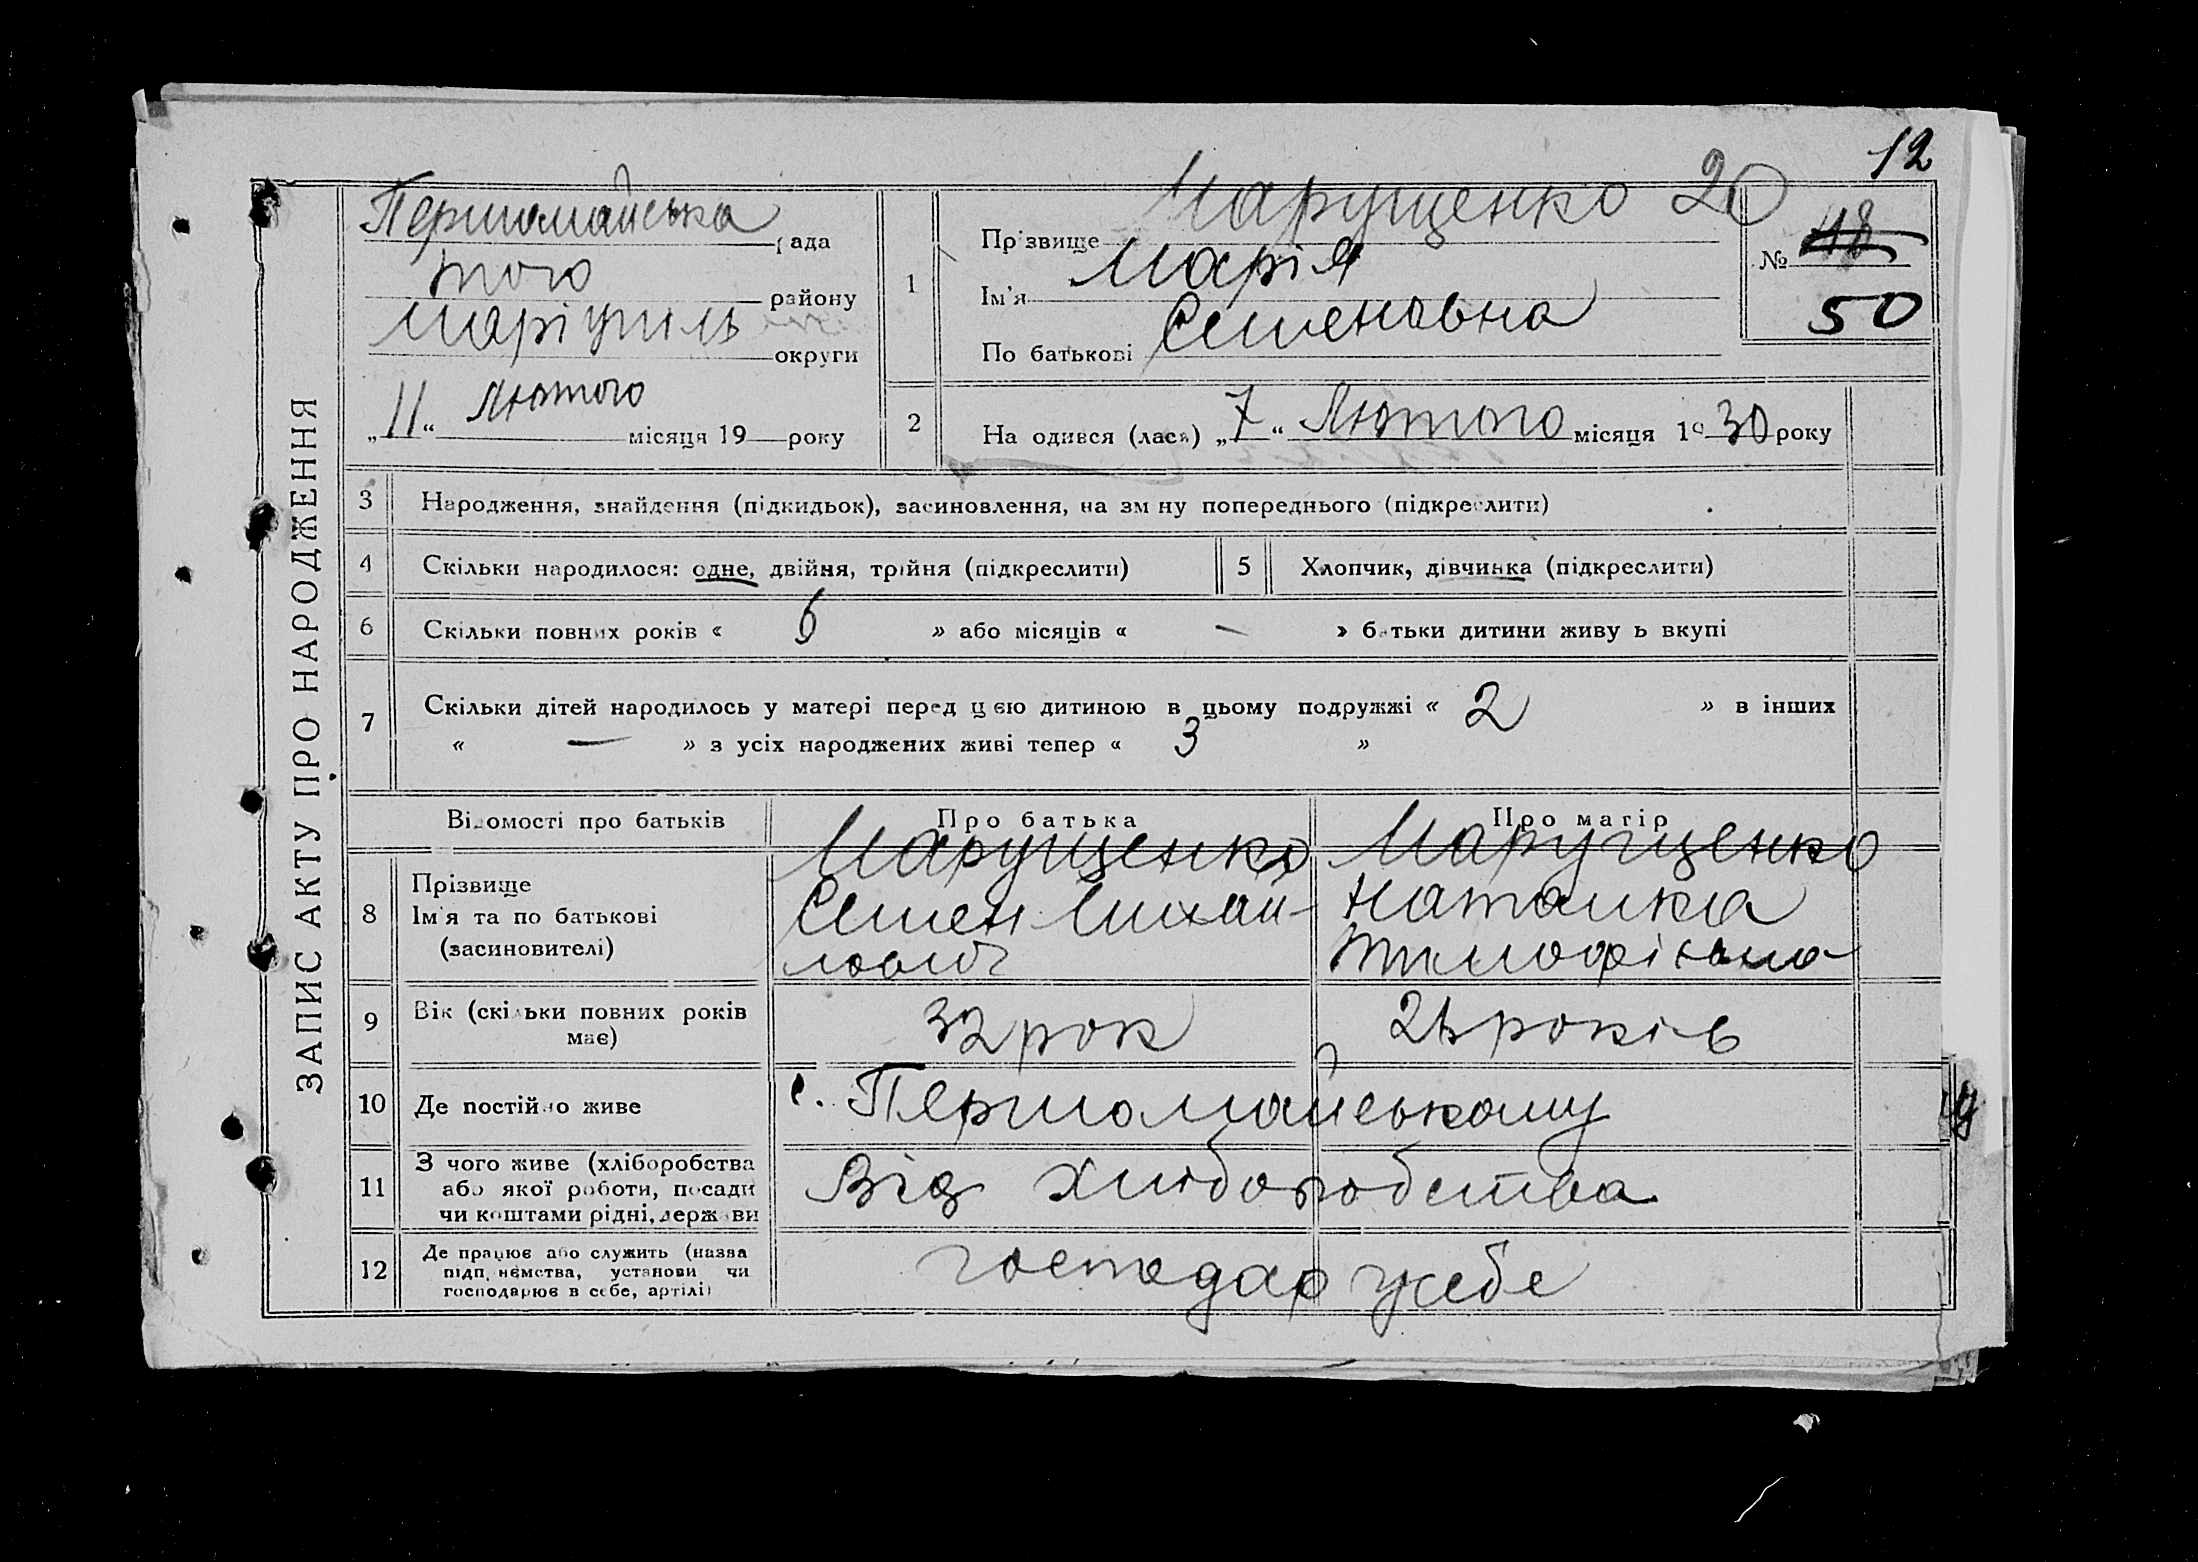 12
Марущенко 20
Першомайська рада
того району
Маріупиль округи
„11“ Лютого місяця 19 року
1
Прізвище
Ім'я Марія
По батькові Семеновна
№ 18
50
2
Народився (лася) „7“ Лютого місяця 1930 року
ЗАПИС АКТУ ПРО НАРОДЖЕННЯ
3 Народження, знайдення (підкидьок), засиновлення, на зміну попереднього (підкреслити)
4 Скільки народилося: одне, двійня, трійня (підкреслити)
5 Хлопчик, дівчинка (підкреслити)
6 Скільки повних років « 6 » або місяців « — » батьки дитини живуть вкупі
7 Скільки дітей народилось у матері перед цією дитиною в цьому подружжі « 2 » в інших
« — » з усіх народжених живі тепер « 3 »
Відомості про батьків
Про батька
Про матір
8 Прізвище
Ім'я та по батькові
(засиновителі)
Марущенко
Семен Михай-
лович
Марущенко
Наталка
Тимофієвна
9 Вік (скільки повних років
має)
32 рок
років
10 Де постійно живе
с. Першомайському
11 З чого живе (хліборобства
або якої роботи, посади
чи коштами рідні, держави
Від хліборобства
12 Де працює або служить (назва
підприємства, установи чи
господарює в себе, артілі)
господар у себе